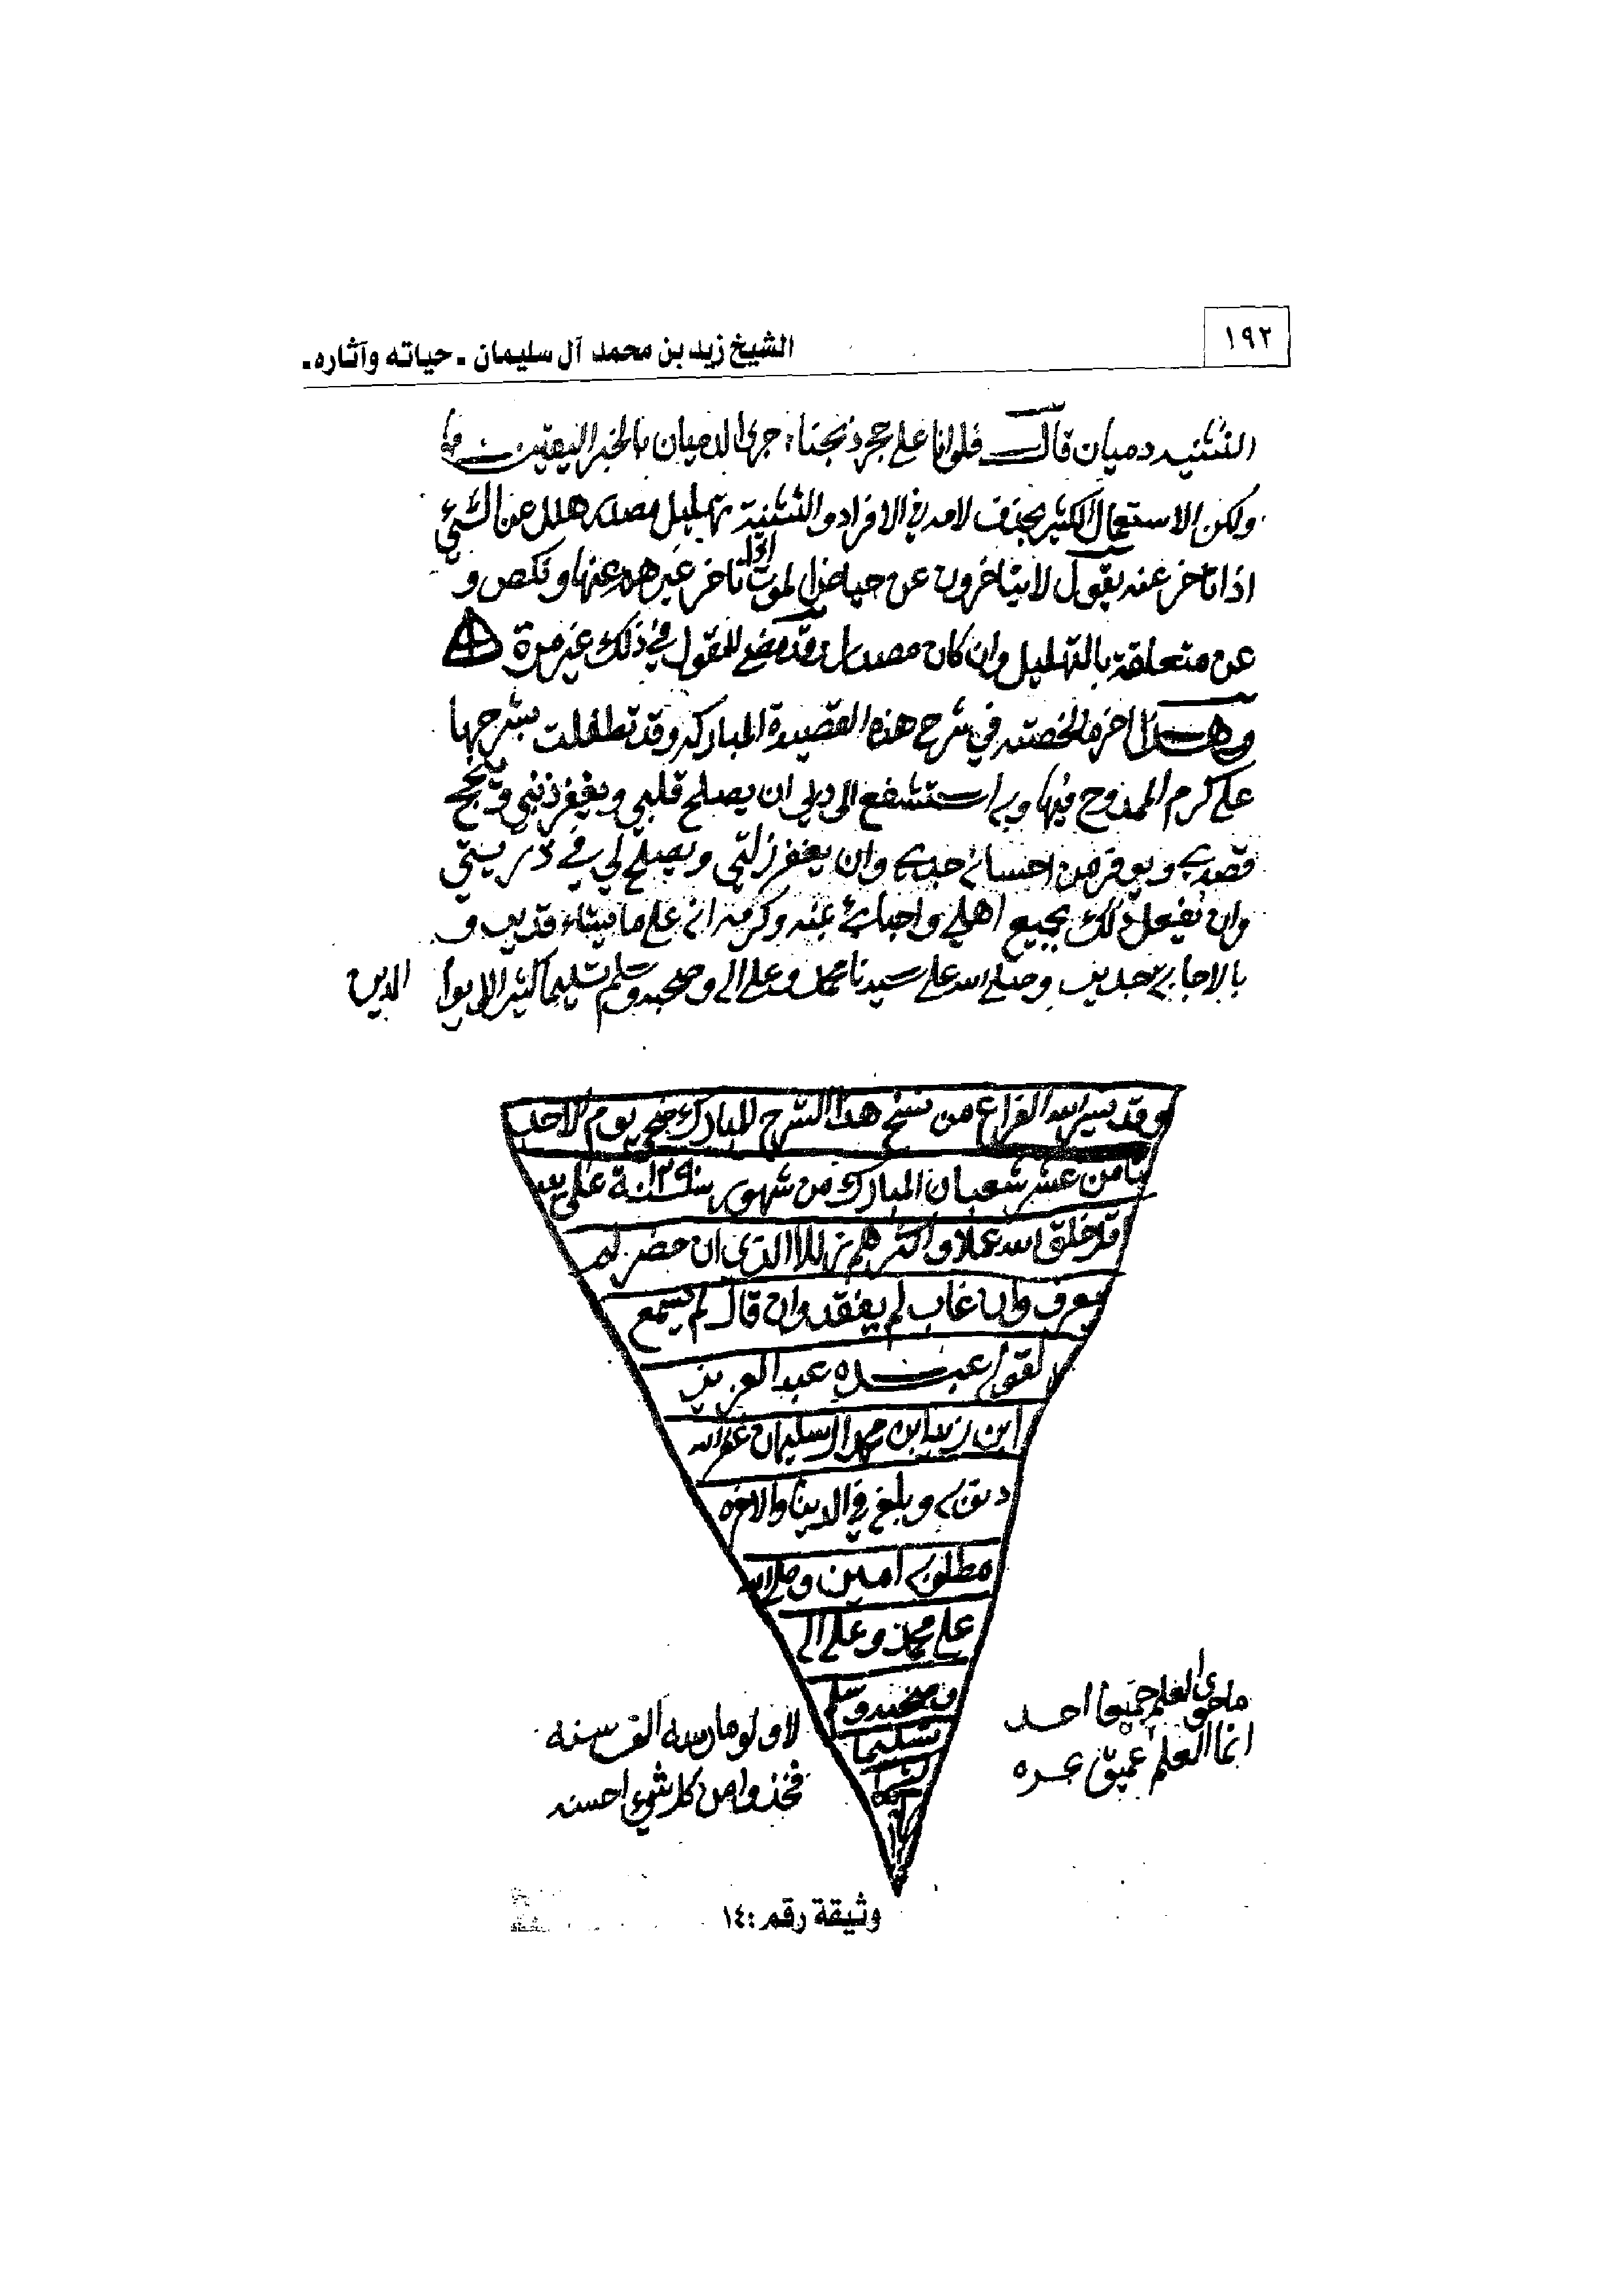 ١٩٢
الشيخ زيد بن محمد آل سليمان ـ حياته وآثاره ـ
التثنيه دميان قال فلو انا على حجر ذبحنا جرى الدميان بالخبر اليقين
ولكن الاستعمال الكثير بحذف لامه في الافراد والتثنية تهليل مصدر هلل عن الشيء
اذا تاخر عنه يقول لا يتاخرون عن حياض الموت اذا تاخر غيرهم عنها ونكص و
عن متعلقة بالتهليل وان كان مصدرا وقد مضى القول في ذلك غير مرة
وهذا اخر ما لخصته في شرح هذه القصيدة المباركه وقد تطفلت بشرحها
على كرم الممدوح فيها وبه استشفع الى ربي ان يصلح قلبي ويغفر ذنبي وينجح
قصدي ويوفر من احسانه جدي وان يغفر زلتي ويصلح لي في ذريتي
وان يفعل ذلك بجميع اهلي واحبائي بمنه وكرمه انه على ما يشاء قدير و
بالاجابة جدير وصلى الله على سيدنا محمد وعلى اله وصحبه وسلم تسليما كثيرا الى يوم الدين
وقد يسر الله الفراغ من نسخ هذا الشرح المبارك ضحى يوم الاحد
ثامن عشر شعبان المبارك من شهور سنة ١٢٩٠ على يد
اقل خلق الله عملا واكثرهم زللا الذي ان حضر لم
يعرف وان غاب لم يفقد وان قال لم يسمع
لقوله عبده عبد العزيز
ابن زيد ابن محمد ال سليمان غفر الله
ذنوبه وبلغه في الدنيا والاخره
مطلوبه امين وصلى الله
على محمد وعلى اله
وصحبه وسلم
تسليما
كثيرا
ما حوى العلم جميعا احد
لا ولو مارسه الف سنه
انما العلم عميق بحره
فخذوا من كل شيء احسنه
وثيقة رقم: ١٤